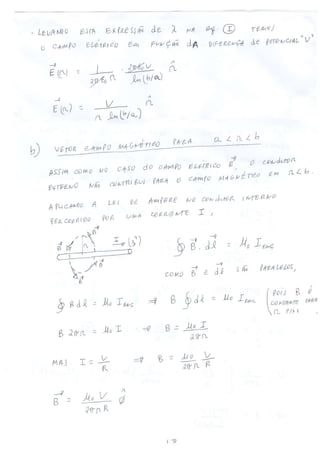 • LEVANDO ESTA EXPRESSÃO DE λ NA EQ. (I) TEMOS
O CAMPO ELÉTRICO EM FUNÇÃO DA DIFERENÇA DE POTENCIAL "V"
E(r) = 1/(2πε₀ r) · 2πε₀V/ln(b/a) r̂
E(r) = V/(r ln(b/a)) r̂
b) VETOR CAMPO MAGNÉTICO PARA a < r < b
ASSIM COMO NO CASO DO CAMPO ELÉTRICO E, O CONDUTOR
EXTERNO NÃO CONTRIBUI PARA O CAMPO MAGNÉTICO EM r < b.
APLICANDO A LEI DE AMPERE NO CONDUTOR INTERNO
PERCORRIDO POR UMA CORRENTE I,
∮ B · dl = μ₀ I enc
COMO B E dl SÃO PARALELOS,
∮ B dl = μ₀ I enc ⇒ B ∮ dl = μ₀ I enc (POIS B É
CONSTANTE PARA
r FIXO
B 2πr = μ₀ I ⇒ B = μ₀ I/(2πr)
MAS I = V/R ⇒ B = μ₀/(2πr) V/R
B = μ₀ V/(2πr R) φ̂